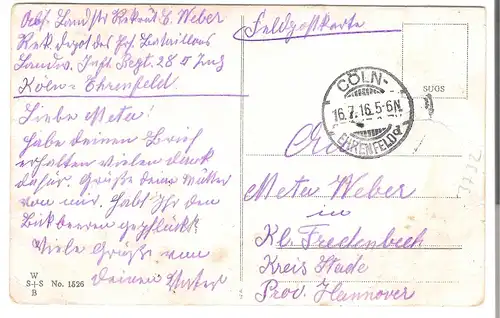 Abs. Landstr Rekrut E. Weber
Rek. Depot des Ers. Bataillons
Landw. Inft Regt. 28 II
Köln-Ehrenfeld
Liebe Meta!
Habe deinen Brief
erhalten vielen dank
dafür. Grüße deine Mutter
von mir. Habt Ihr den
Bickbeeren gepflückt
Viele Grüße von
deinen Vater
W
S+S No. 1526
B
Feldpostkarte
CÖLN-
16.7.16.5-6N
EHRENFELD
SUGS
An
Meta Weber
in
Kl. Fredenbeck
Kreis Stade
Prov. Hannover